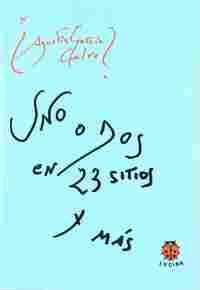 ¿Agustín García
Calvo?
UNO o DOS
en 23 SITIOS
y MÁS
LUCINA